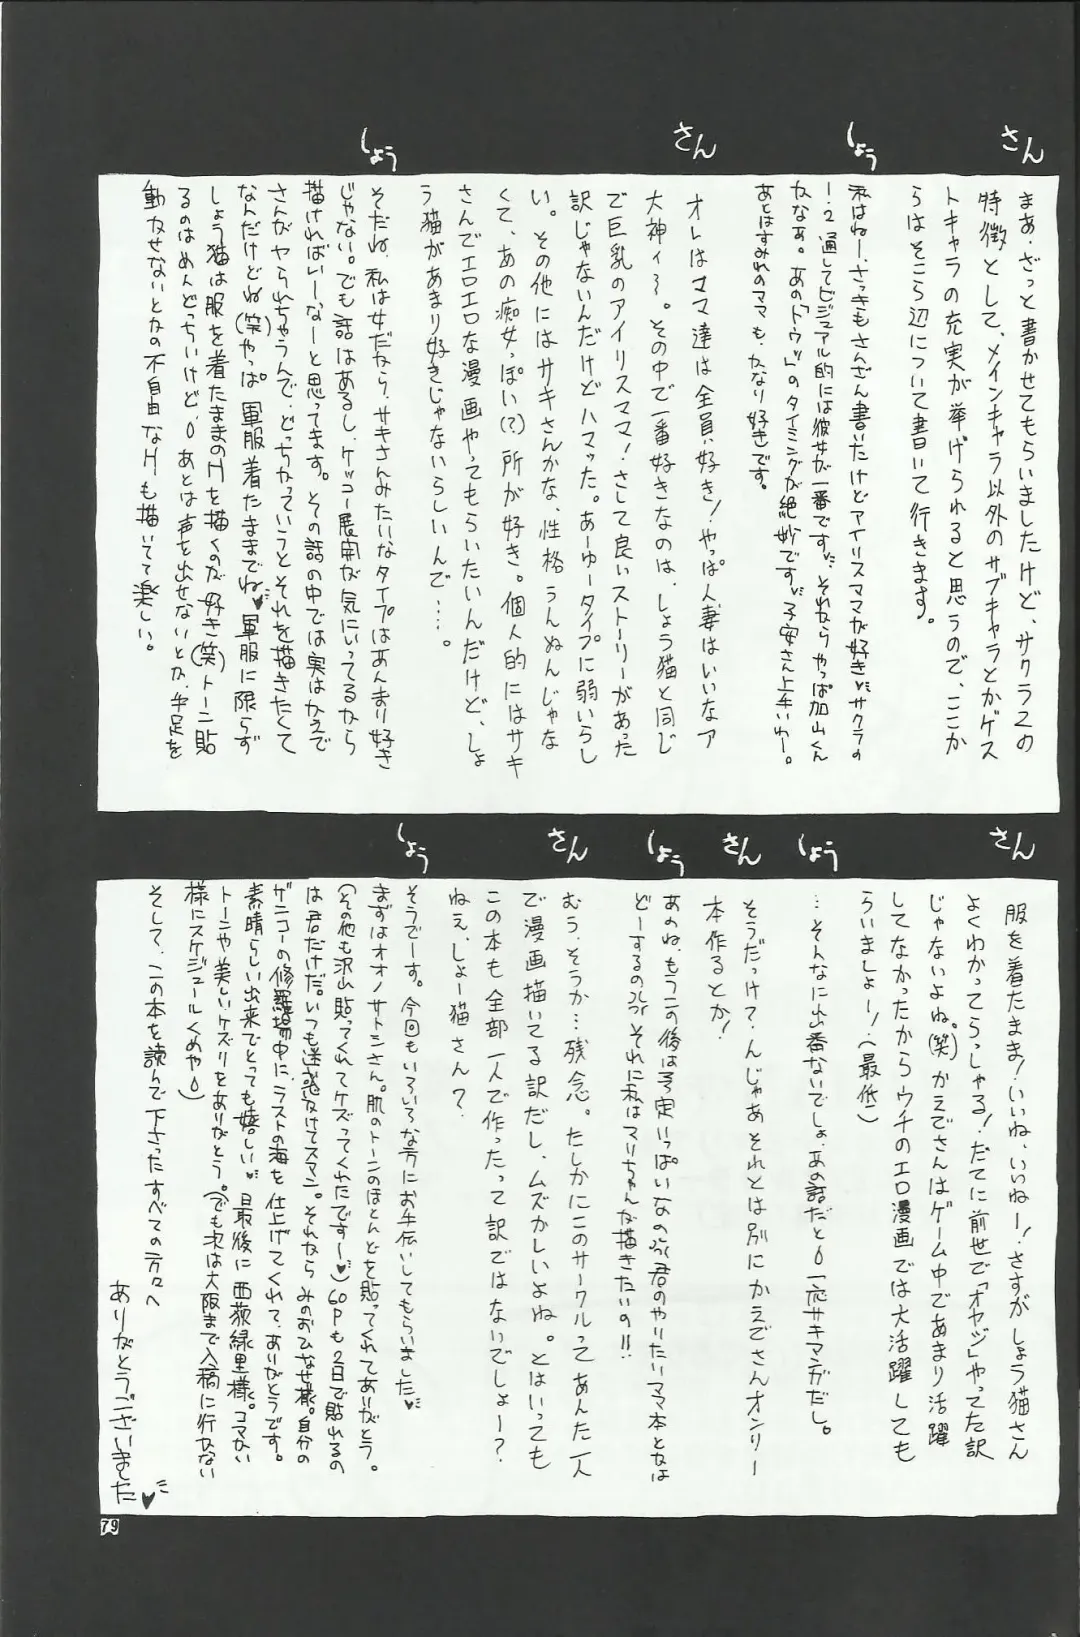 さん
まあ、ざっと書かせてもらいましたけど、サクラ2の
特徴として、メインキャラ以外のサブキャラとかゲス
トキャラの充実が挙げられると思うので、ここか
らはそこら辺について書いて行きます。
しょう
私はねー、さっきもさんざん書いたけどアイリスママが好き♥サクラの
1・2通してビジュアル的には彼女が一番です♥それならやっぱ加山くん
かなぁ。あの「トウッ!」のタイミングが絶妙です♥子安さん上手いわー。
あとはすみれのママも、かなり好きです。
さん
オレはママ達は全員、好き!やっぱ人妻はいいなア
大神ィ〜。その中で一番好きなのは、しょう猫と同じ
で巨乳のアイリスママ!さして良いストーリーがあった
訳じゃないんだけどハマッた。あーゆータイプに弱いらし
い。その他にはサキさんかな、性格うんぬんじゃな
くて、あの痴女っぽい(?)所が好き。個人的にはサキ
さんでエロエロな漫画やってもらいたいんだけど、しょ
う猫があまり好きじゃないらしいんで…。
しょう
そだね、私は女だから、サキさんみたいなタイプはあんまり好き
じゃない。でも話はあるし、ケッコー展開が気にいってるから
描ければいーなーと思ってます。その話の中では実はかえで
さんがヤられちゃうんで、どっちかっていうとそれを描きたくて
なんだけどね(笑)やっぱ軍服着たままでね♥軍服に限らず
しょう猫は服を着たままのHを描くのが好き(笑)トーン貼
るのはめんどっちいけど、あとは声を出せないとか、手足を
動かせないとかの不自由なHも描いてて楽しい。
さん
服を着たまま!いいね、いいねー!さすがしょう猫さん
よくわかってらっしゃる!だてに前世で「オヤジ」やってた訳
じゃないよね。(笑)かえでさんはゲーム中であまり活躍
してなかったからウチのエロ漫画では大活躍しても
らいましょー!(最低)
しょう
…そんなに出番ないでしょ、あの話だと 一応サキマンガだし。
さん
そうだっけ?んじゃあそれとは別にかえでさんオンリー
本作るとか!
しょう
あのね、もうこの後は予定いっぱいなの 君のやりたいママ本とかは
どーするの それに私はマリちゃんが描きたいの!!
さん
むう、そうか…残念。たしかにこのサークルってあんた一人
で漫画描いてる訳だし、ムズかしいよね。とはいっても
この本も全部一人で作ったって訳ではないでしょー?
ねえ、しょー猫さん?
しょう
そうでーす。今回もいろいろな方にお手伝いしてもらいました♥
まずはオオノサトシさん。肌のトーンのほとんどを貼ってくれてありがとう。
(その他も沢山貼ってくれてケズってくれたです〜♥)60Pも2日で貼れるの
は君だけだ。いつも迷惑かけてスマン。それから みのおひなせ様。自分の
ザニコーの修羅場中に、ラストの海を仕上げてくれて、ありがとうです。
素晴らしい出来でとっても嬉しい♥最後に西荻緑里様。コマかい
トーンや美しいケズリをありがとう。(でも次は大阪まで入稿に行かない
様にスケジュールくめや)
そして、この本を読んで下さったすべての方々へ
ありがとうございました♥
79